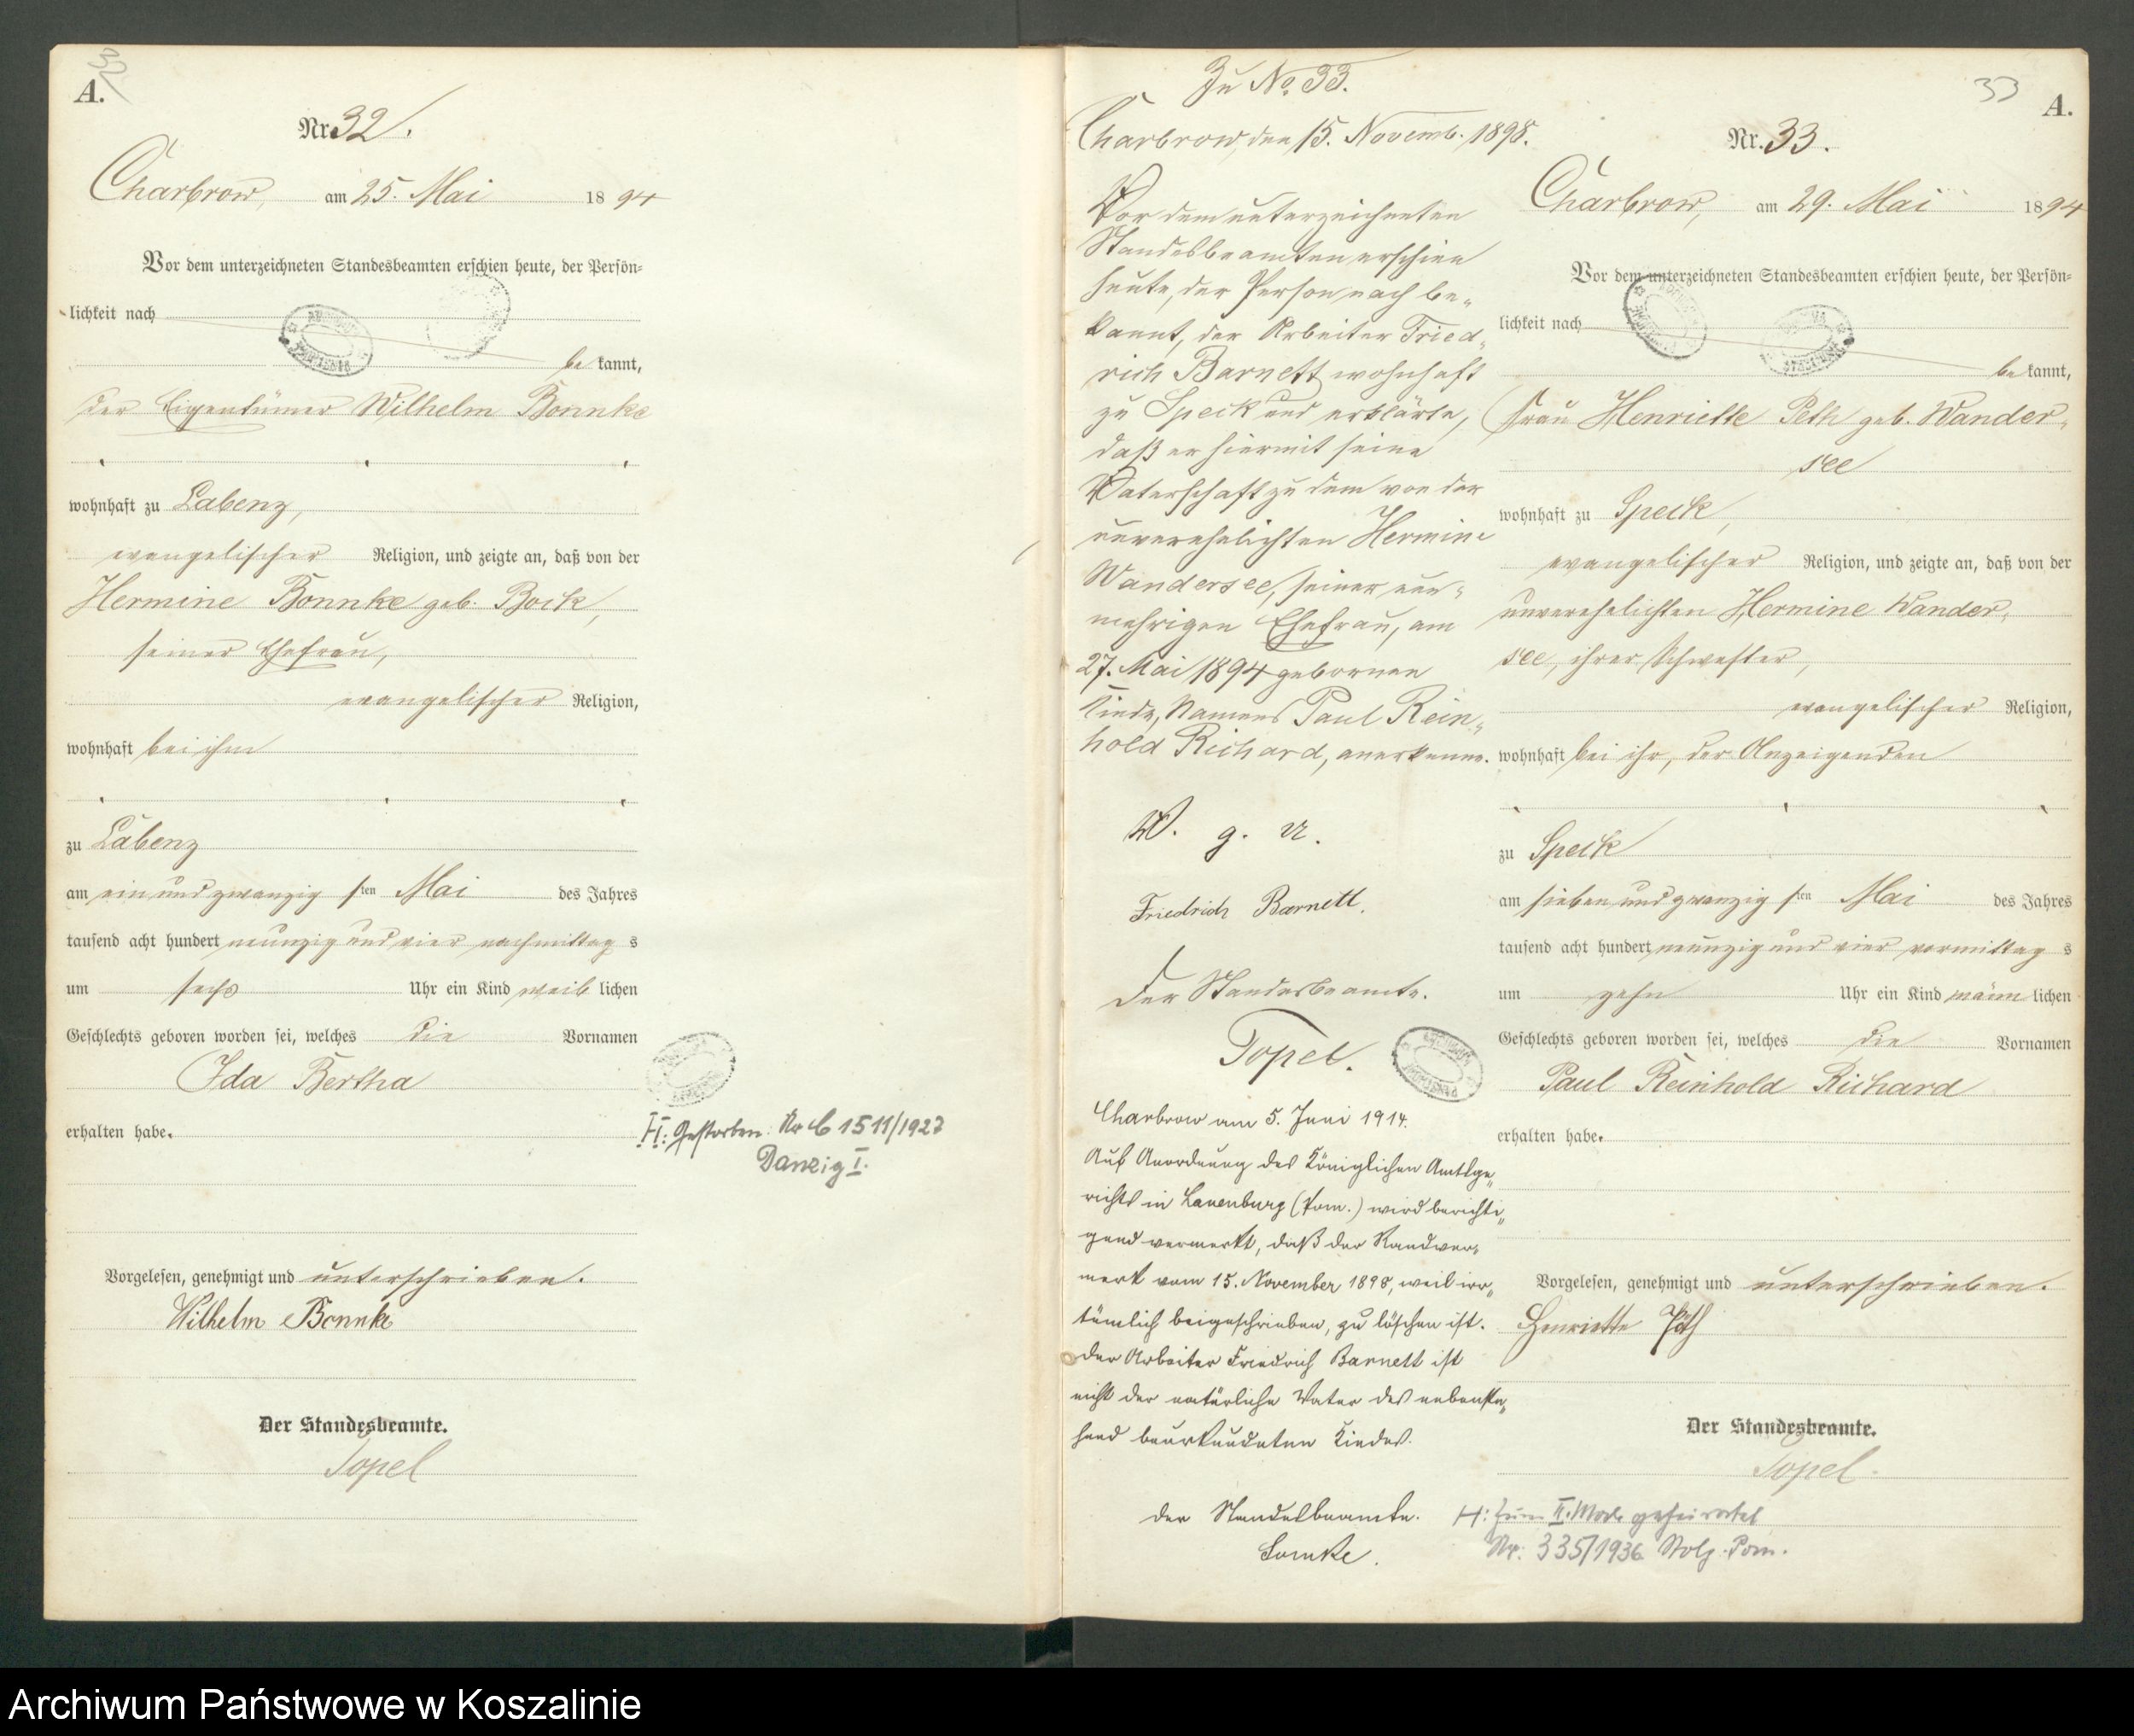 A.
Nr. 32.
Charbrow, am 25. Mai 1894
Vor dem unterzeichneten Standesbeamten erschien heute, der Persön=
lichkeit nach
be kannt,
der Eigentümer Wilhelm Bonnke
wohnhaft zu Labenz,
evangelischer Religion, und zeigte an, daß von der
Hermine Bonnke geb. Bock,
seiner Ehefrau,
evangelischer Religion,
wohnhaft bei ihm
zu Labenz
am ein und zwanzig sten Mai des Jahres
tausend acht hundert neunzig und vier nachmittag s
um sechs Uhr ein Kind weib lichen
Geschlechts geboren worden sei, welches die Vornamen
Ida Bertha
erhalten habe.
H: Gestorben. Nr C 1511/1927
Danzig I.
Vorgelesen, genehmigt und unterschrieben.
Wilhelm Bonnke
Der Standesbeamte.
Topel
Zu No. 33.
Charbrow, den 15. Novemb. 1898.
Vor dem unterzeichneten
Standesbeamten erschien
heute, der Person nach be-
kannt, der Arbeiter Fried-
rich Barnett wohnhaft
zu Speck und erklärte,
daß er hiermit seine
Vaterschaft zu dem von der
unverehelichten Hermine
Wandersee, seiner nun-
mehrigen Ehefrau, am
27. Mai 1894 geborenen
Kinde, Namens Paul Rein-
hold Richard, anerkenne.
V. g. u.
Friedrich Barnett.
Der Standesbeamte.
Topel.
Charbrow am 5. Juni 1914.
Auf Anordnung des Königlichen Amtsge-
richts in Lauenburg (Pom.) wird berichti-
gend vermerkt, daß der Randver-
merk vom 15. November 1898, weil irr-
tümlich beigeschrieben, zu löschen ist.
Der Arbeiter Friedrich Barnett ist
nicht der natürliche Vater des nebenste-
hend beurkundeten Kindes.
Der Standesbeamte.
Lomke.
33
A.
Nr. 33.
Charbrow, am 29. Mai 1894
Vor dem unterzeichneten Standesbeamten erschien heute, der Persön=
lichkeit nach
be kannt,
Frau Henriette Peth geb. Wander-
see
wohnhaft zu Speck,
evangelischer Religion, und zeigte an, daß von der
unverehelichten Hermine Wander-
see, ihrer Schwester,
evangelischer Religion,
wohnhaft bei ihr, der Anzeigenden
zu Speck
am sieben und zwanzig sten Mai des Jahres
tausend acht hundert neunzig und vier vormittag s
um zehn Uhr ein Kind männ lichen
Geschlechts geboren worden sei, welches die Vornamen
Paul Reinhold Richard
erhalten habe.
Vorgelesen, genehmigt und unterschrieben.
Henriette Päth
Der Standesbeamte.
Topel.
H: Zum II. Male geheiratet
Nr. 335/1936 Stolp-Pom.
Archiwum Państwowe w Koszalinie